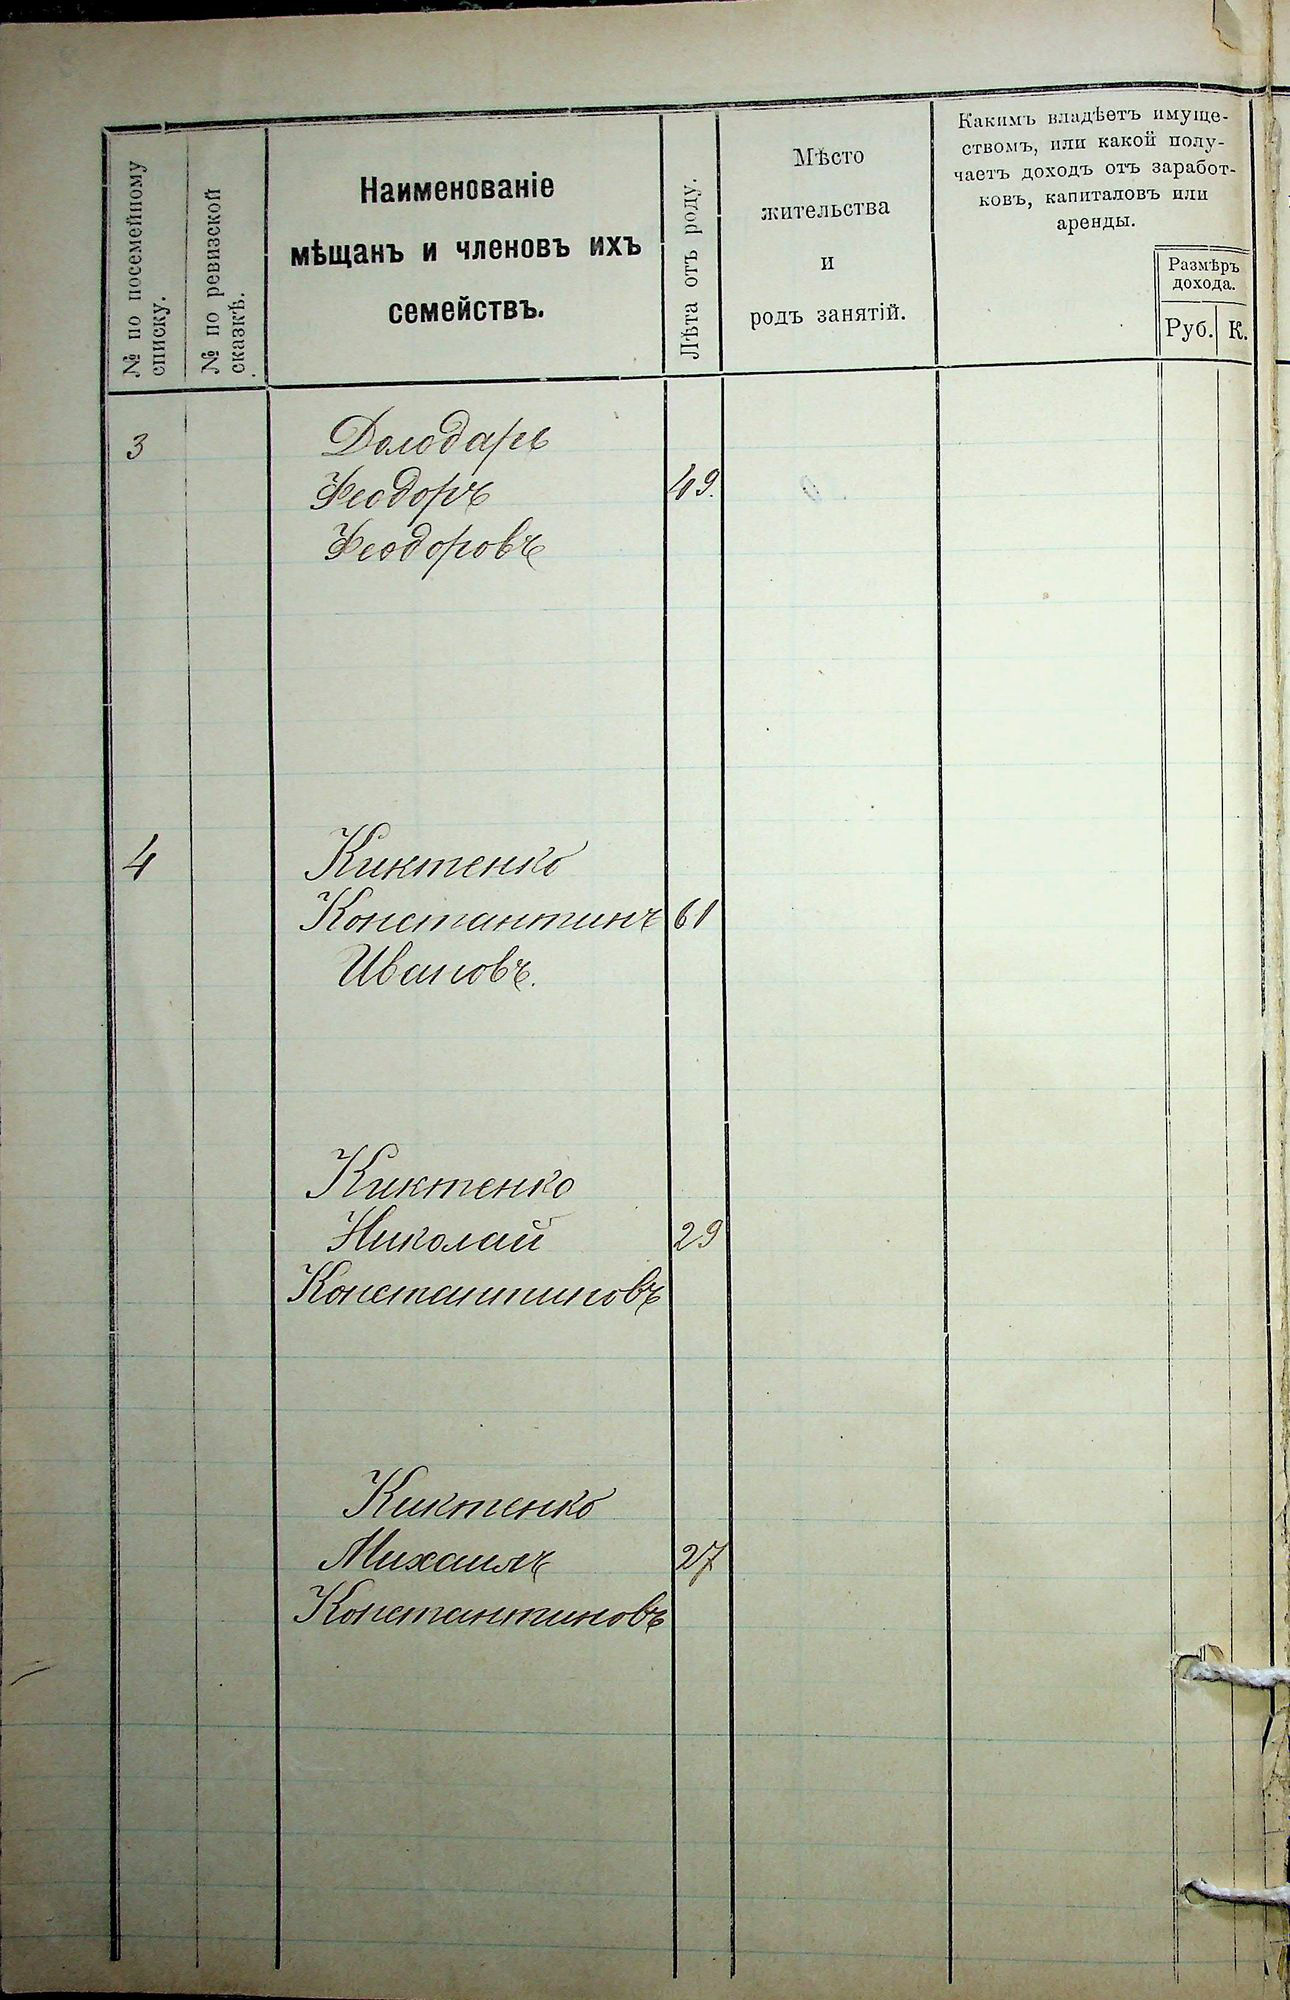 № по посемейному
списку.
№ по ревизской
сказкѣ.
Наименованіе
мѣщанъ и членовъ ихъ
семействъ.
Лѣта отъ роду.
Мѣсто
жительства
и
родъ занятій.
Какимъ владѣетъ имуще-
ствомъ, или какой полу-
чаетъ доходъ отъ заработ-
ковъ, капиталовъ или
аренды.
Размѣръ
дохода.
Руб. К.
3 Долодаръ
Ѳеодоръ 49.
Ѳеодоровъ
4 Киктенко
Константинъ 61
Ивановъ.
Киктенко
Николай 29
Константиновъ
Киктенко
Михаилъ 27
Константиновъ